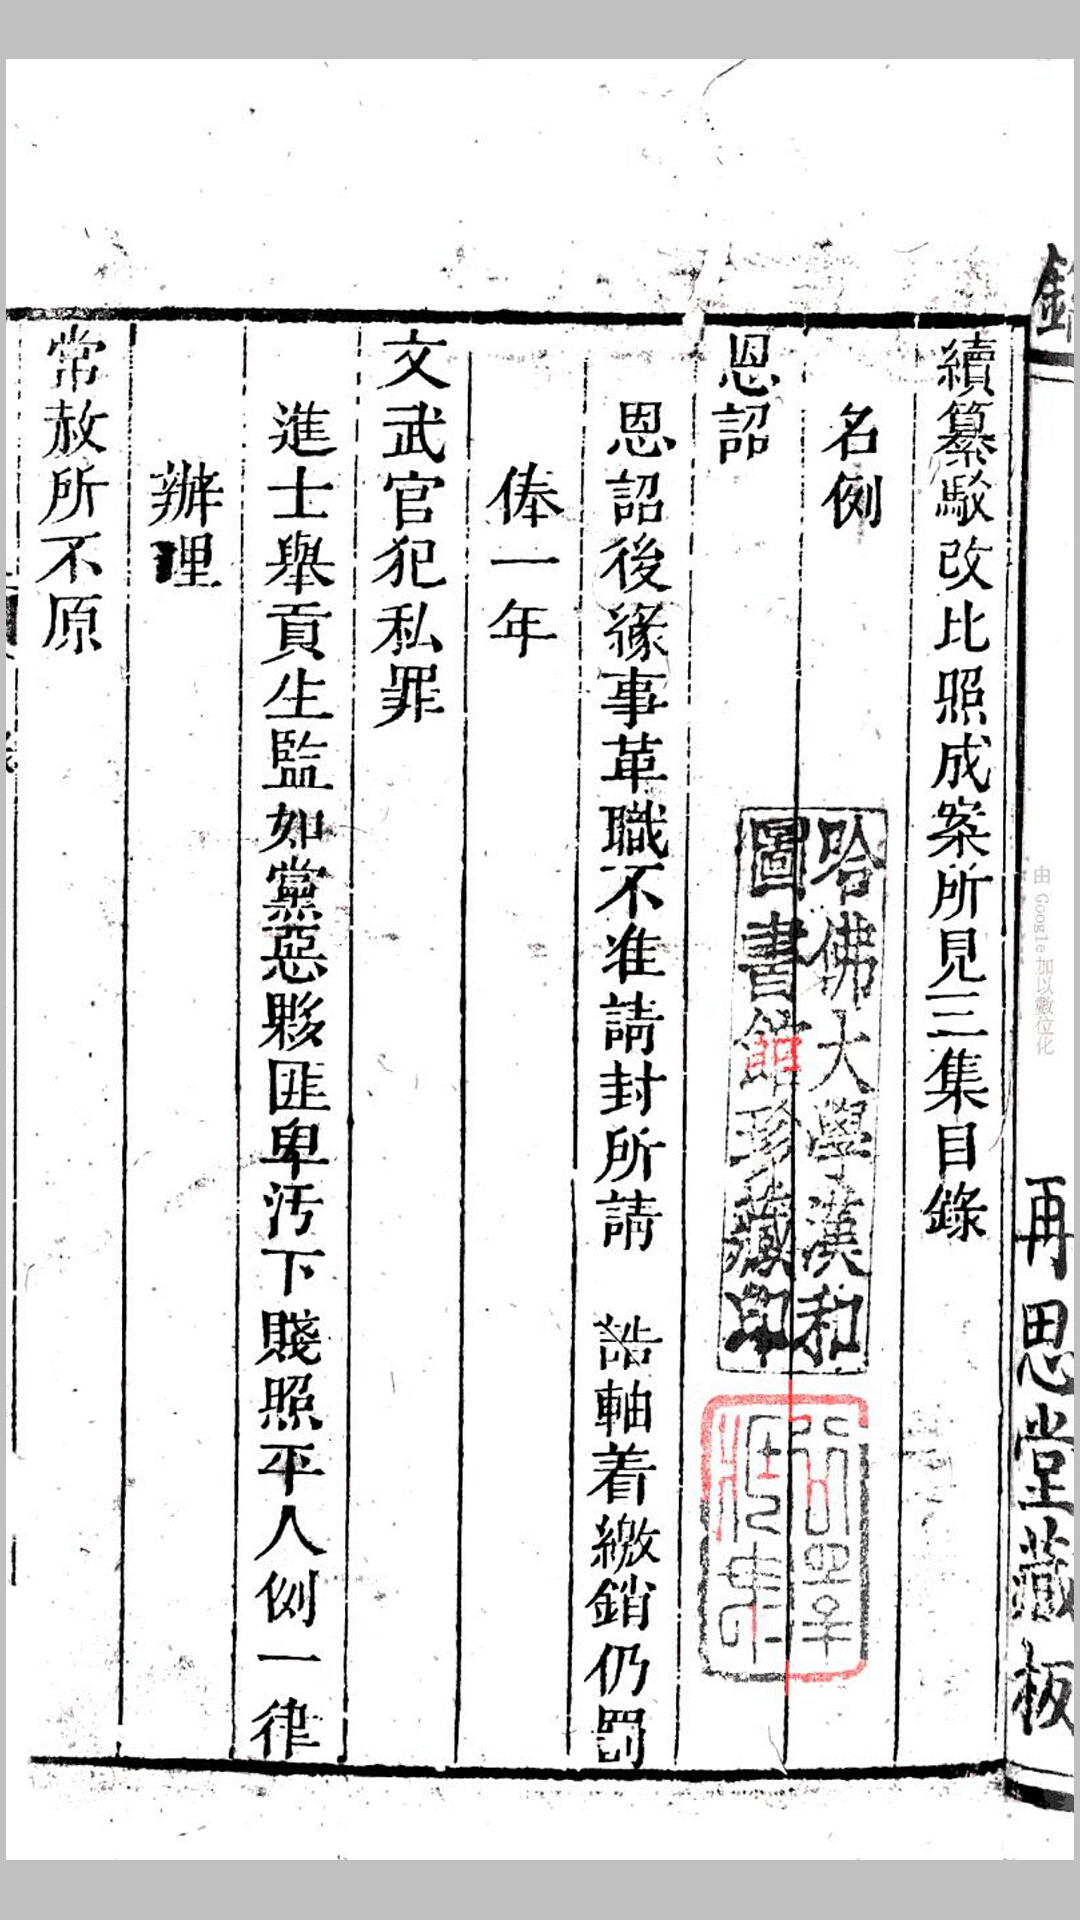 續纂駁改比照成案所見三集目錄
名例
恩詔
恩詔後緣事革職不准請封所請　誥軸着繳銷仍罰
俸一年
文武官犯私罪
進士舉貢生監如黨惡夥匪卑污下賤照平人例一律
辦理
常赦所不原
哈佛大學漢和
圖書館珍藏印
再思堂藏板
由 Google 加以數位化